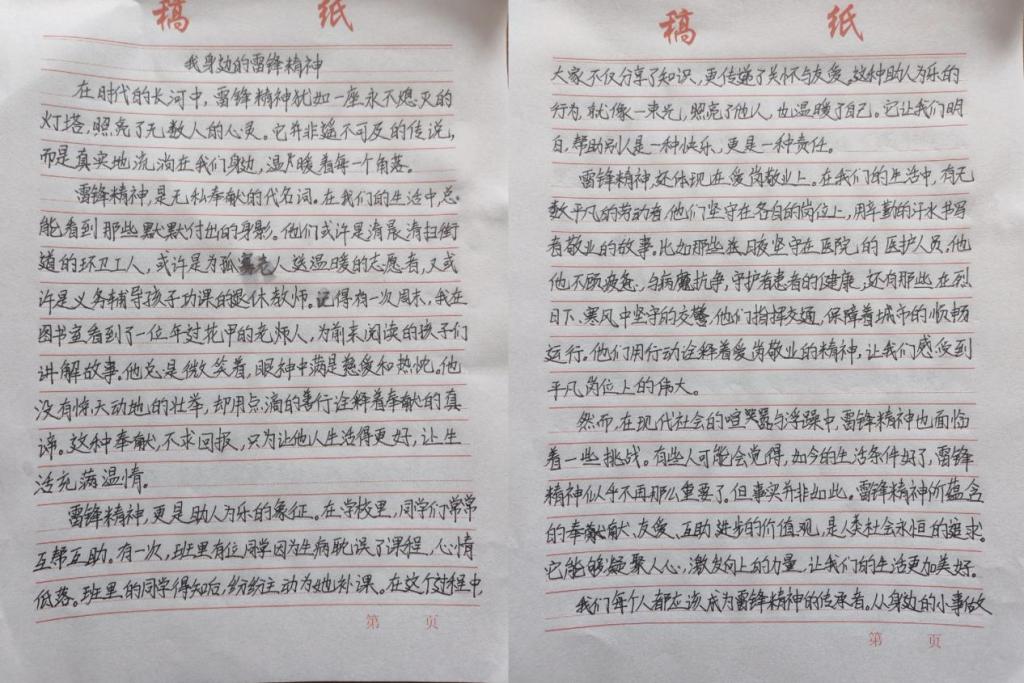 稿 纸
我身边的雷锋精神
在时代的长河中，雷锋精神犹如一座永不熄灭的
灯塔，照亮了无数人的心灵。它并非遥不可及的传说，
而是真实地流淌在我们身边，温暖着每一个角落。
雷锋精神，是无私奉献的代名词。在我们的生活中，总
能看到那些默默付出的身影。他们或许是清晨清扫街
道的环卫工人，或许是为孤寡老人送温暖的志愿者，又或
许是义务辅导孩子功课的退休教师。记得有一次周末，我在
图书室看到了一位年过花甲的老人，为前来阅读的孩子们
讲解故事。他总是微笑着，眼神中满是慈爱和热忱。他
没有惊天动地的壮举，却用点滴的善行诠释着奉献的真
谛。这种奉献，不求回报，只为让他人生活得更好，让生
活充满温情。
雷锋精神，更是助人为乐的象征。在学校里，同学们常常
互帮互助。有一次，班里有位同学因为生病耽误了课程，心情
低落。班里的同学得知后，纷纷主动为她补课。在这个过程中，
第 页
稿 纸
大家不仅分享了知识，更传递了关怀与友爱。这种助人为乐的
行为，就像一束光，照亮了他人，也温暖了自己。它让我们明
白，帮助别人是一种快乐，更是一种责任。
雷锋精神，还体现在爱岗敬业上。在我们的生活中，有无
数平凡的劳动者，他们坚守在各自的岗位上，用辛勤的汗水书写
着敬业的故事。比如那些日夜坚守在医院，的医护人员，他
他不顾疲惫，与病魔抗争，守护着患者的健康。还有那些在烈
日下、寒风中坚守的交警，他们指挥交通，保障着城市的顺畅
运行。他们用行动诠释着爱岗敬业的精神，让我们感受到
平凡岗位上的伟大。
然而，在现代社会的喧嚣与浮躁中，雷锋精神也面临
着一些挑战。有些人可能会觉得，如今的生活条件好了，雷锋
精神似乎不再那么重要了。但事实并非如此。雷锋精神所蕴含
的奉献、友爱、互助、进步的价值观，是人类社会永恒的追求。
它能够凝聚人心，激发向上的力量，让我们的生活更加美好。
我们每个人都应该成为雷锋精神的传承者。从身边的小事做
第 页